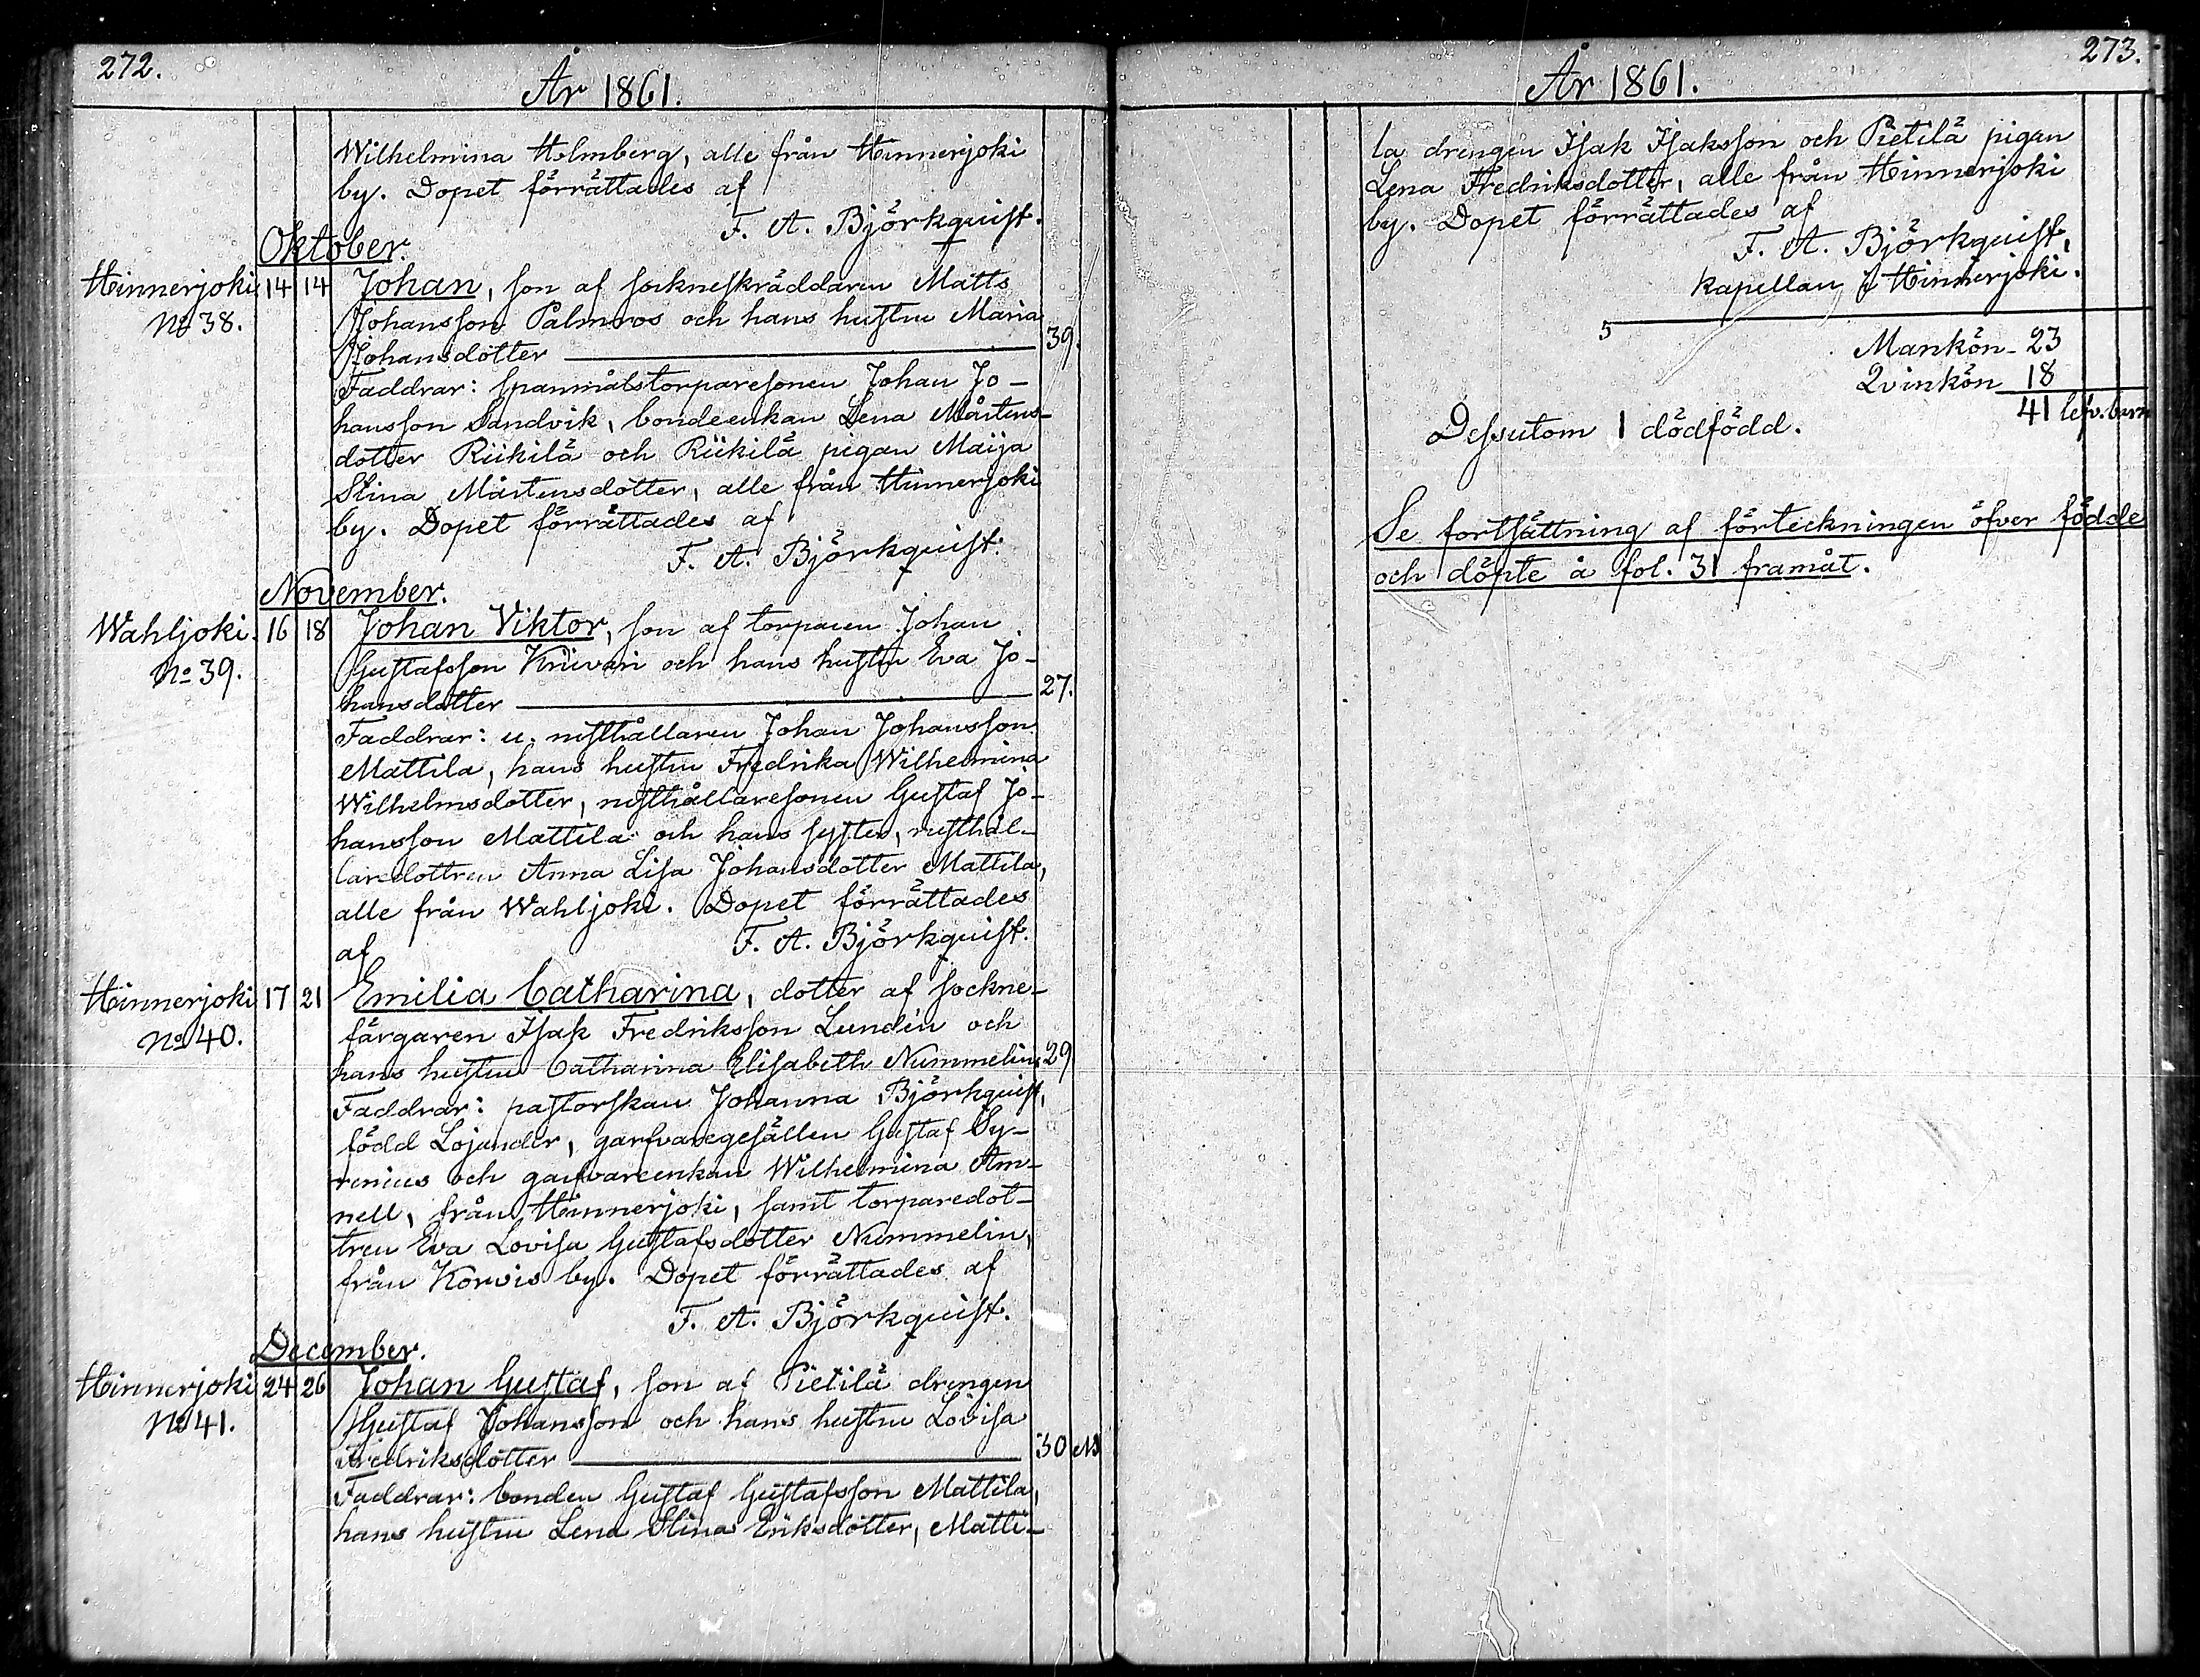 272.
År 1861.
Wilhelmina Holmberg, alle från Hinnerjoki
by. Dopet förrättades af
F. A. Björkquist.
Oktober.
Hinnerjoki 14 14 Johan, son af sockneskräddaren Matts
No 38. Johansson Palmroos och hans hustru Maria
Johansdotter 39.
Faddrar: spanmålstorparesonen Johan Jo-
hansson Sandvik, bondeenkan Lena Mårtens-
dotter Riikilä och Riikilä pigan Maija
Stina Mårtensdotter, alle från Hinnerjoki
by. Dopet förrättades af
F. A. Björkquist.
November.
Wahljoki. 16 18 Johan Viktor, son af torparen Johan
No 39. Gustafsson Kriivari och hans hustru Eva Jo-
hansdotter 27.
Faddrar: u. rusthållaren Johan Johansson
Mattila, hans hustru Fredrika Wilhelmina
Wilhelmsdotter, rusthållaresonen Gustaf Jo-
hansson Mattila och hans syster, rusthål-
laredottren Anna Lisa Johansdotter Mattila,
alle från Wahljoki. Dopet förrättades
af F. A. Björkquist.
Hinnerjoki 17 21 Emilia Catharina, dotter af sockne-
No 40. färgaren Isak Fredriksson Lundin och
hans hustru Catharina Elisabeth Nummelin 29
Faddrar: pastorskan Johanna Björkquist,
född Lojander, garfvaregesällen Gustaf Sy-
renius och garfvareenkan Wilhelmina Am-
nell, från Hinnerjoki, samt torparedot-
tren Eva Lovisa Gustafsdotter Nummelin,
från Korvis by. Dopet förrättades af
F. A. Björkquist.
December.
Hinnerjoki 24 26 Johan Gustaf, son af Pietilä drengen
No 41. Gustaf Johansson och hans hustru Lovisa
Fredriksdotter 30
Faddrar: bonden Gustaf Gustafsson Mattila,
hans hustru Lena Stina Eriksdotter, Matti-
273.
År 1861.
la drengen Isak Isaksson och Pietilä pigan
Lena Fredriksdotter, alle från Hinnerjoki
by. Dopet förrättades af
F. A. Björkquist,
kapellan i Hinnerjoki.
5
Mankön - 23
Qvinkön 18
41 lefv. barn
Dessutom 1 dödfödd.
Se fortsättning af förteckningen öfver födde
och döpte å fol. 31 framåt.